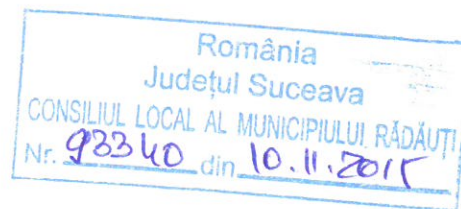 România
Județul Suceava
CONSILIUL LOCAL AL MUNICIPIULUI RĂDĂUȚI
Nr. 93340 din 10.11.2015